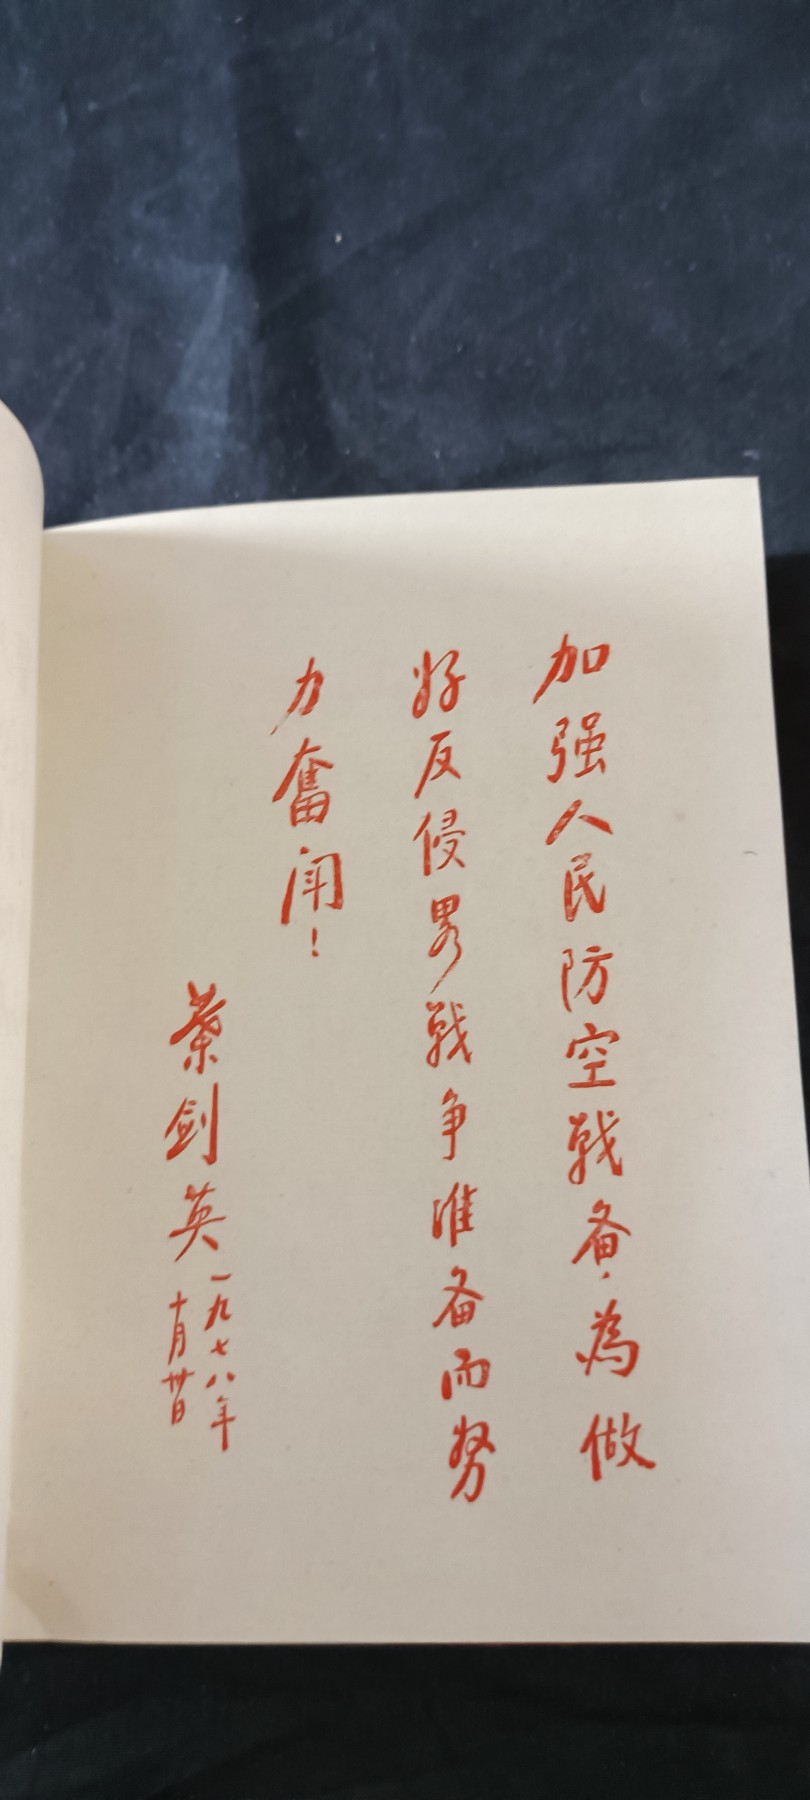 加强人民防空战备，为做
好反侵畧战争准备而努
力奋闘！
葉剑英
一九七八年
十月卅日